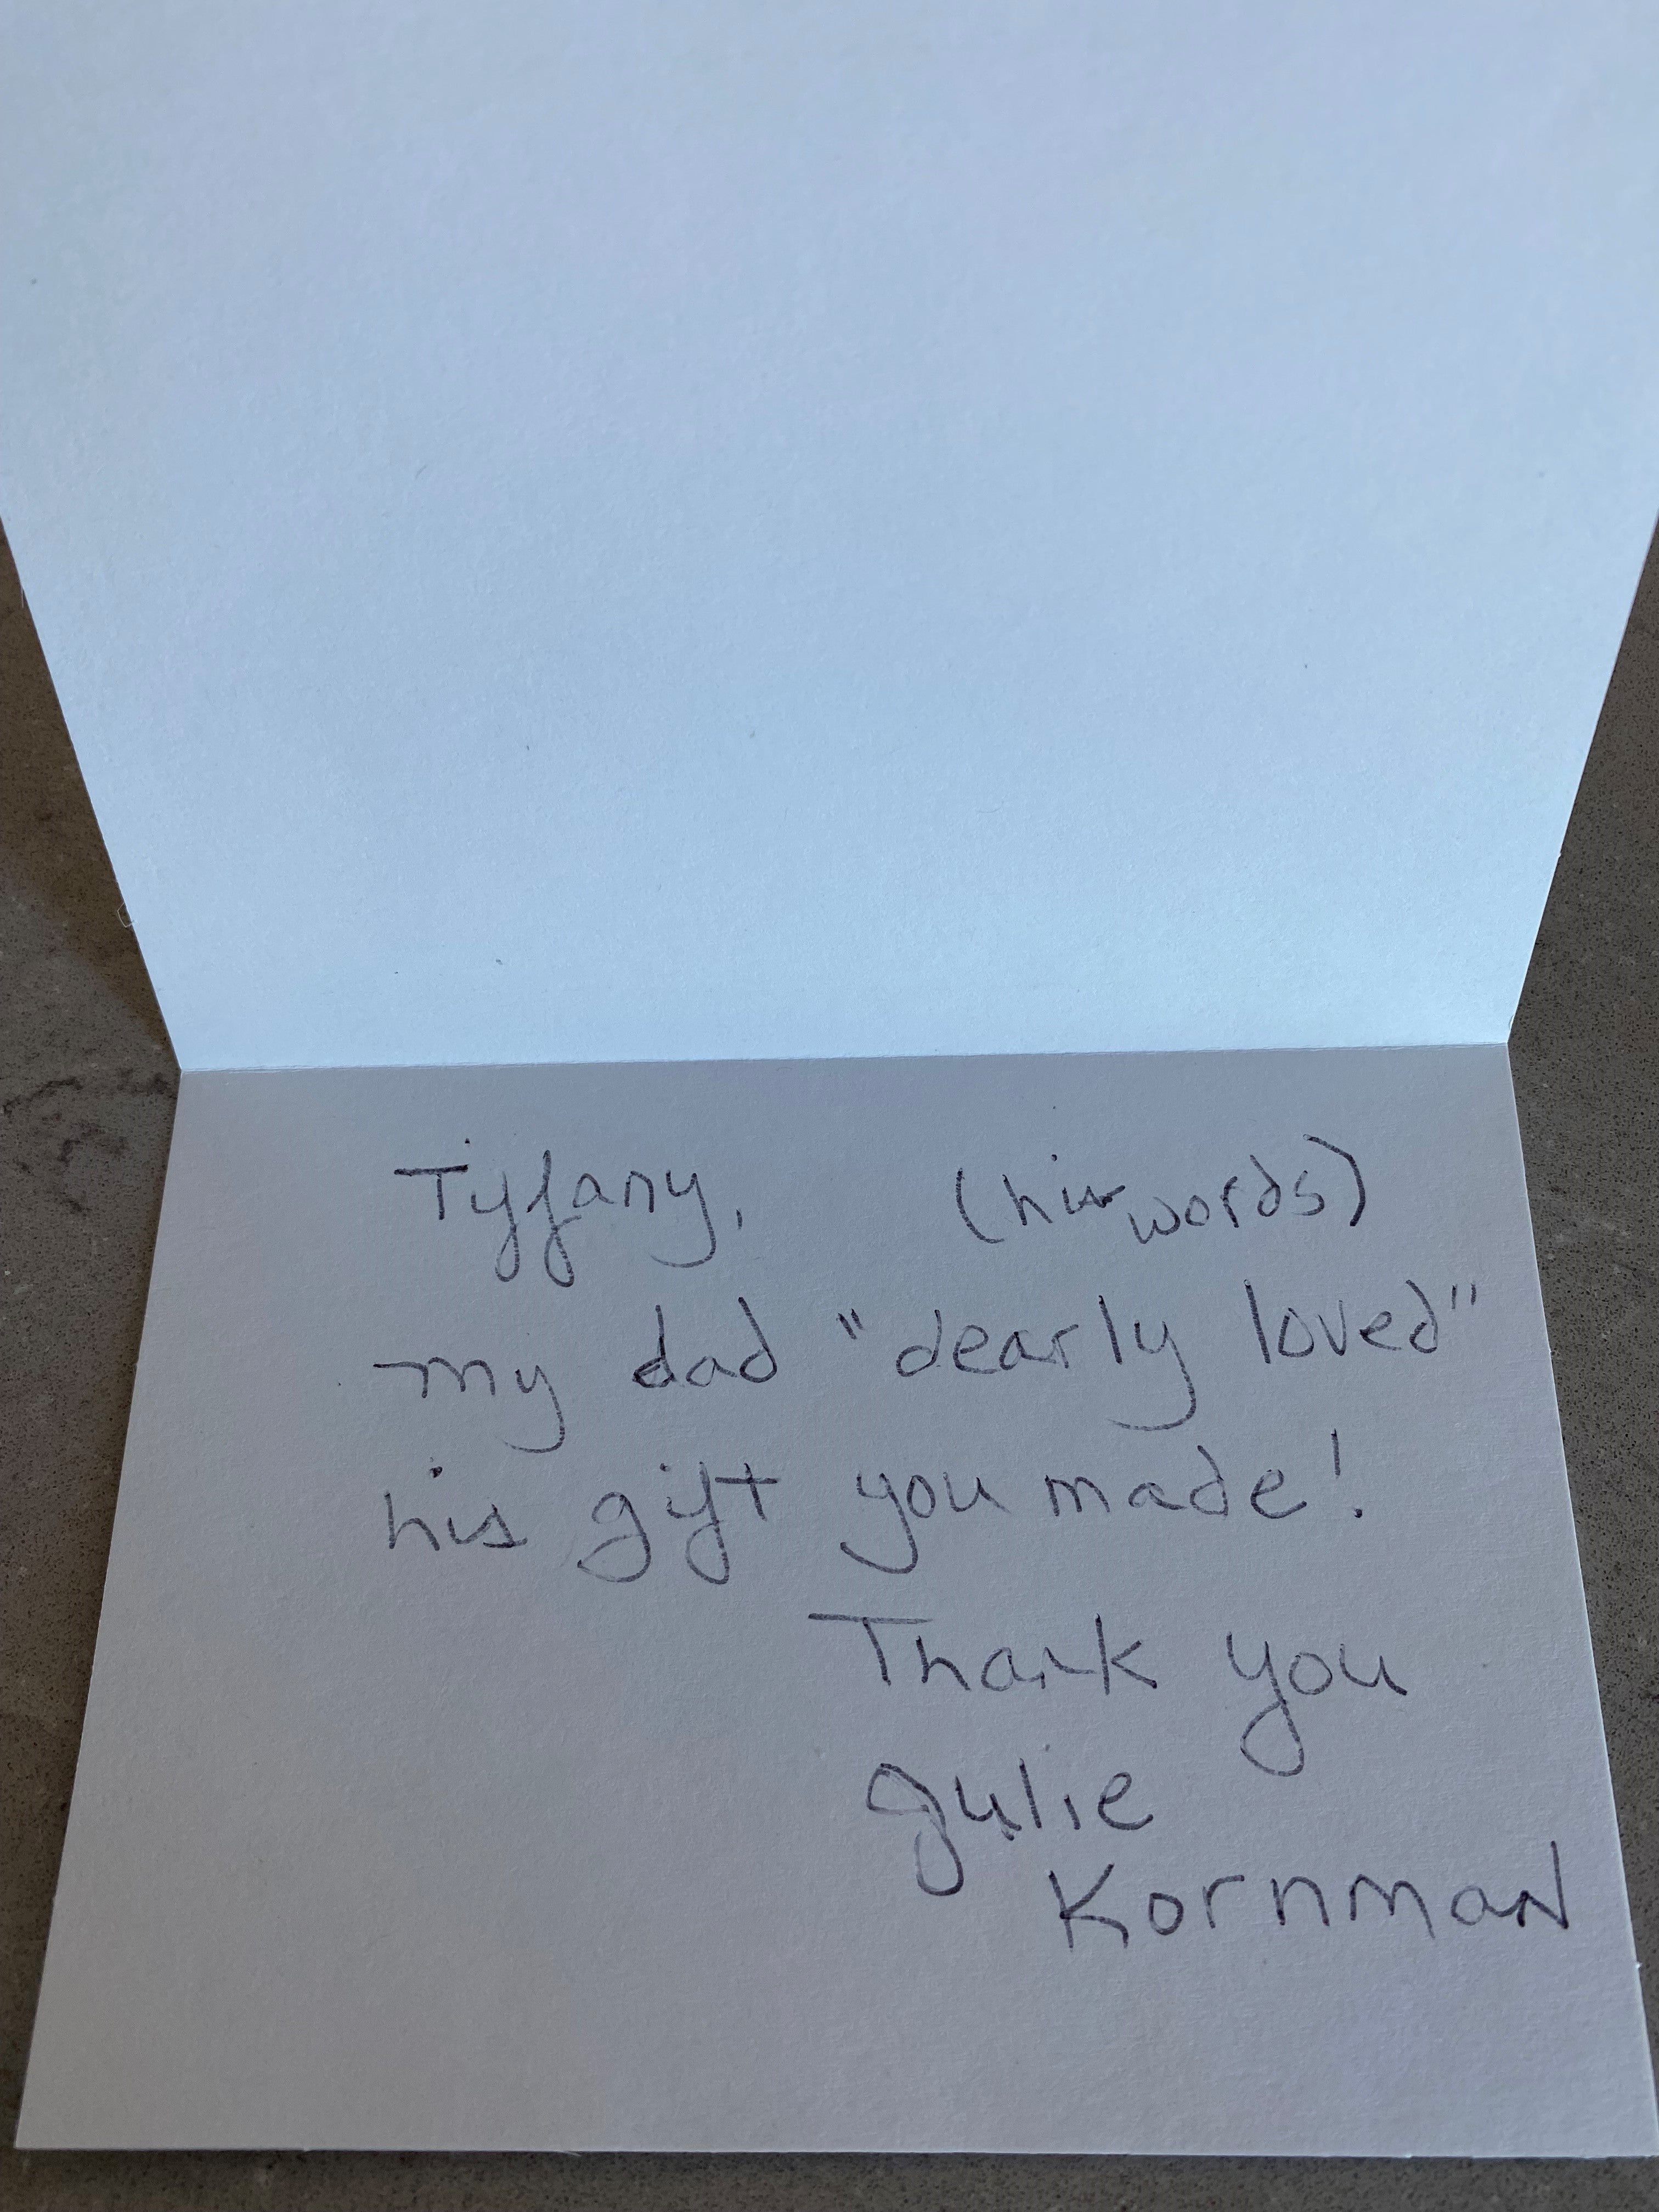 Tiffany,
(his words)
my dad "dearly loved"
his gift you made!
Thank you
Julie
Kornman